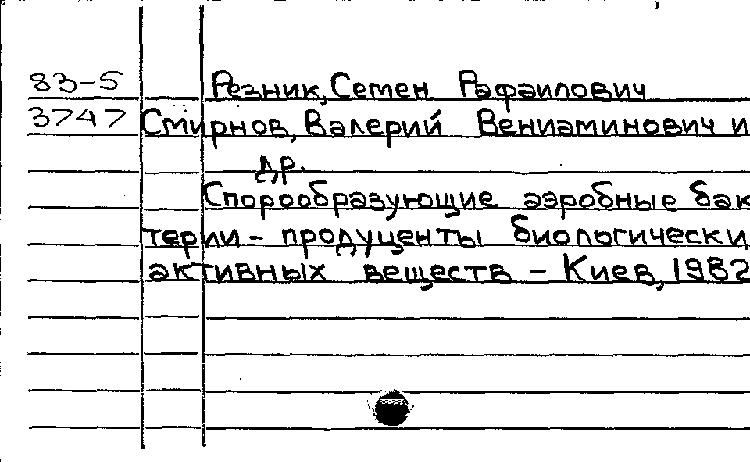 83-5 Резник, Семен Рафаилович
3747 Смирнов, Валерий Вениаминович и
др.
Спорообразующие аэробные бак
терии - продуценты биологически
активных веществ - Киев, 1982